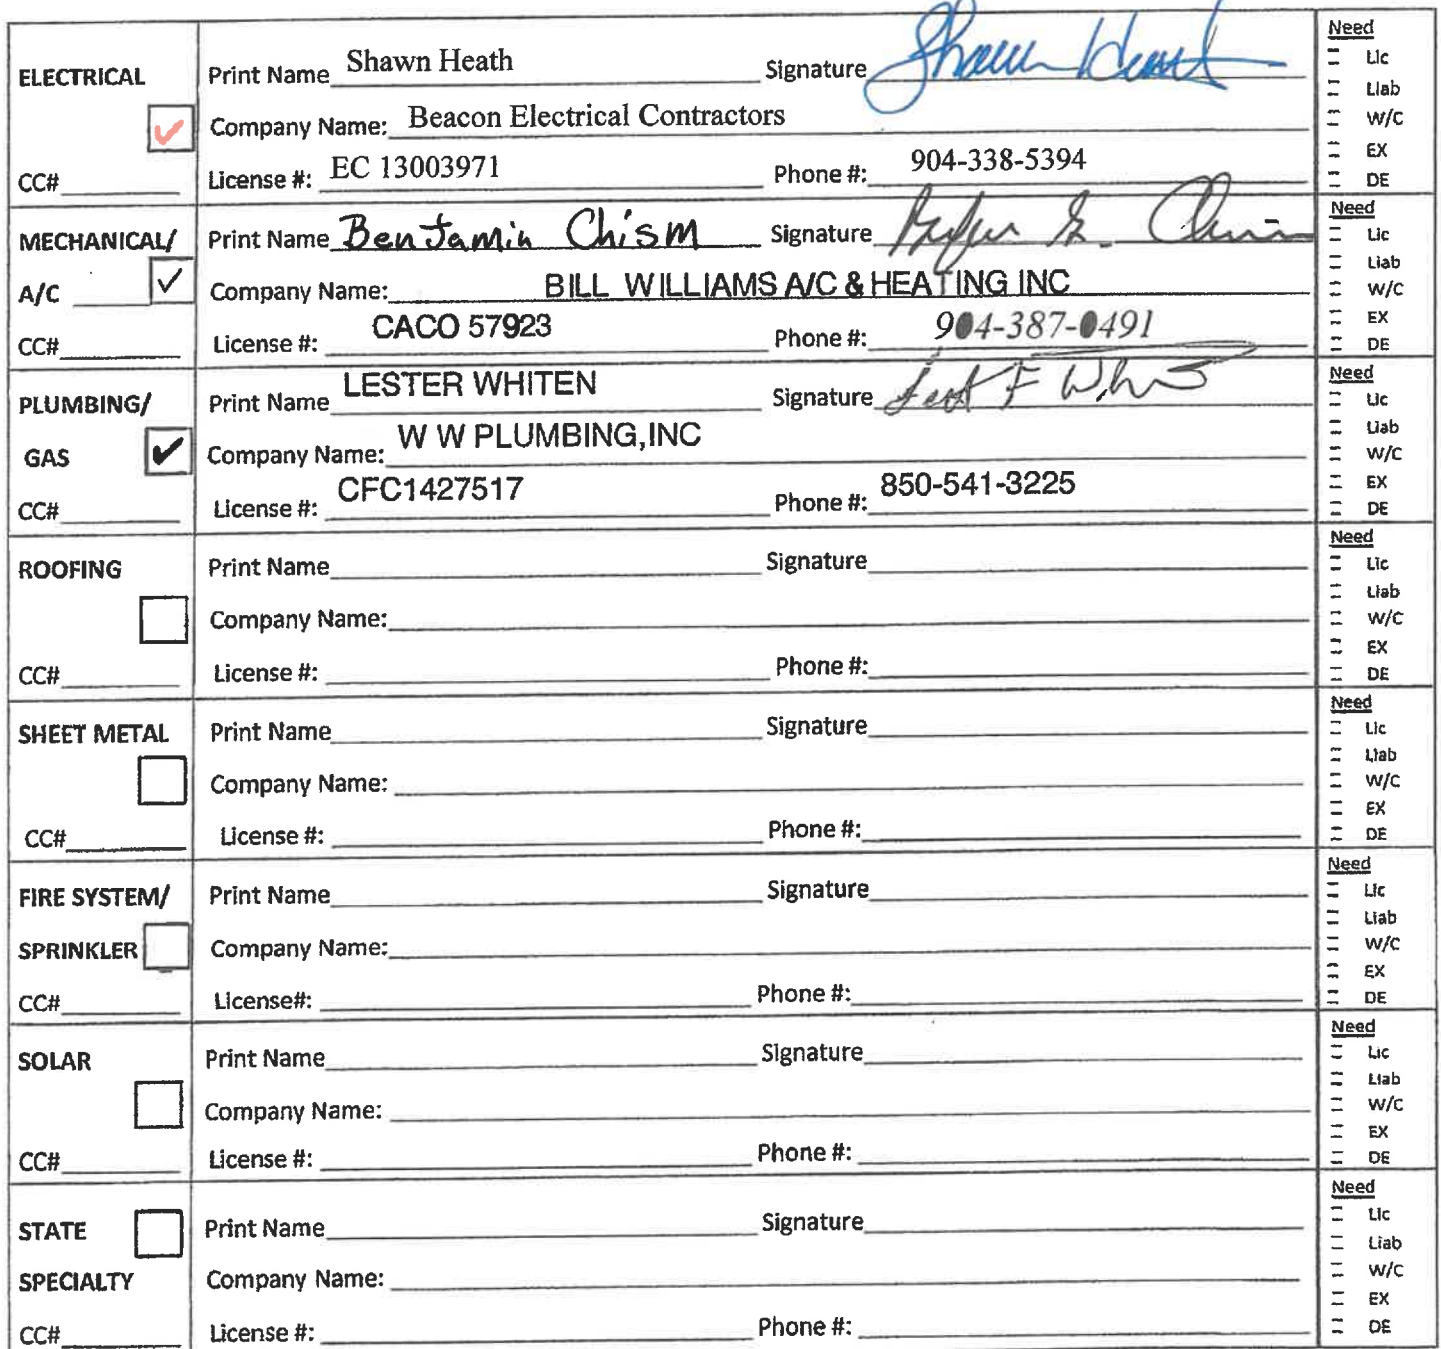 ELECTRICAL
Print Name Shawn Heath Signature Shawn Heath
Company Name: Beacon Electrical Contractors
CC# License #: EC 13003971 Phone #: 904-338-5394
Need
Lic
Liab
W/C
EX
DE
MECHANICAL/
A/C
Print Name Benjamin Chism Signature
Company Name: BILL WILLIAMS A/C & HEATING INC
CC# License #: CACO 57923 Phone #: 904-387-0491
Need
Lic
Liab
W/C
EX
DE
PLUMBING/
GAS
Print Name LESTER WHITEN Signature
Company Name: W W PLUMBING,INC
CC# License #: CFC1427517 Phone #: 850-541-3225
Need
Lic
Liab
W/C
EX
DE
ROOFING
Print Name Signature
Company Name:
CC# License #: Phone #:
Need
Lic
Liab
W/C
EX
DE
SHEET METAL
Print Name Signature
Company Name:
CC# License #: Phone #:
Need
Lic
Liab
W/C
EX
DE
FIRE SYSTEM/
SPRINKLER
Print Name Signature
Company Name:
CC# License#: Phone #:
Need
Lic
Liab
W/C
EX
DE
SOLAR
Print Name Signature
Company Name:
CC# License #: Phone #:
Need
Lic
Liab
W/C
EX
DE
STATE
SPECIALTY
Print Name Signature
Company Name:
CC# License #: Phone #:
Need
Lic
Liab
W/C
EX
DE